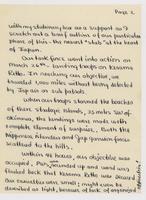 Page 2
with my stationery box as a support as I
scratch out a brief outline of our particular
phase of this - the newest "stab" at the heart
of Japan.
Our task force went into action on
March 26th, landing troops on Kerama
Retto. In reaching our objective, we
traveled 1,200 miles without being detected
by Jap air or sub patrols.
When our troops stormed the beaches
of these strategic islands, 25 miles SW of
Okinawa, the landings were made with
complete element of surprise. Both the
Nipponese and Jap garrison forces
scuttled to the hills.
Within 48 hours, our objective was
occupied, the wounded up and word was
flashed back that Kerama Retto was secured.
Our casualties was small; might even be
described as light, because of lack of organized
opposition